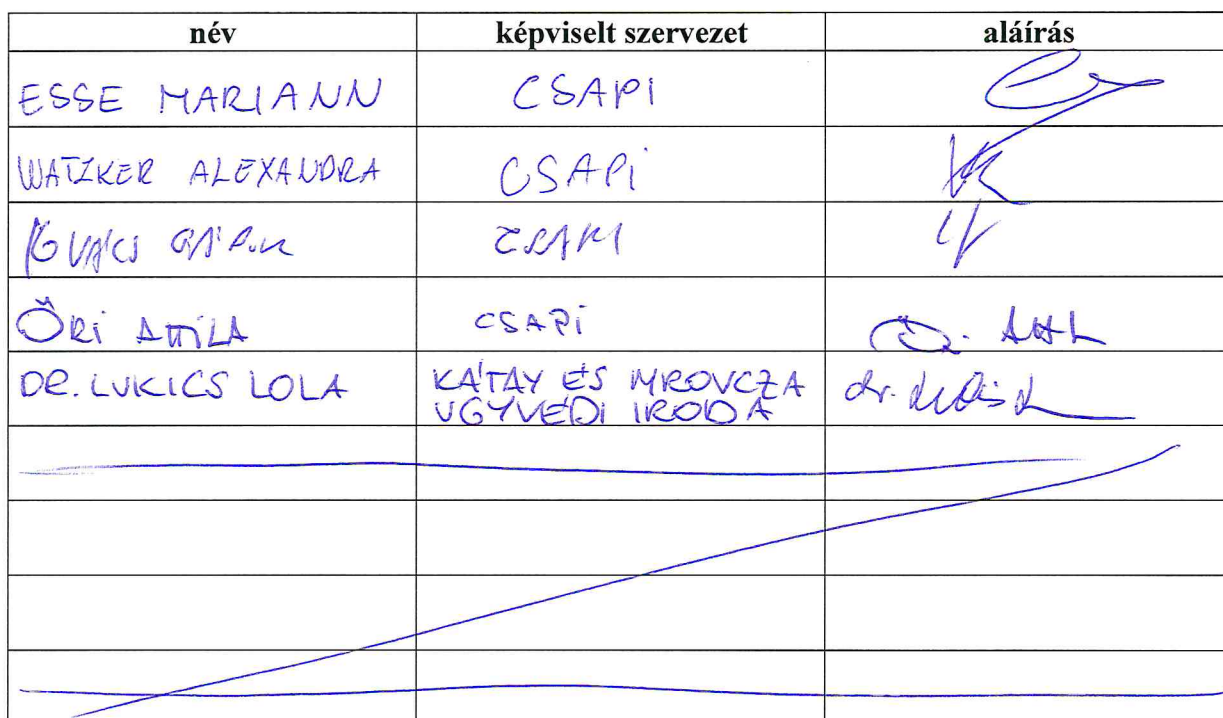 név képviselt szervezet aláírás
ESSE MARIANN CSAPI
WATZKER ALEXANDRA CSAPi
ŐRi ATTiLA CSAPi
DR. LUKICS LOLA KÁTAY ÉS MROVCZA
ÜGYVÉDi IRODA dr.